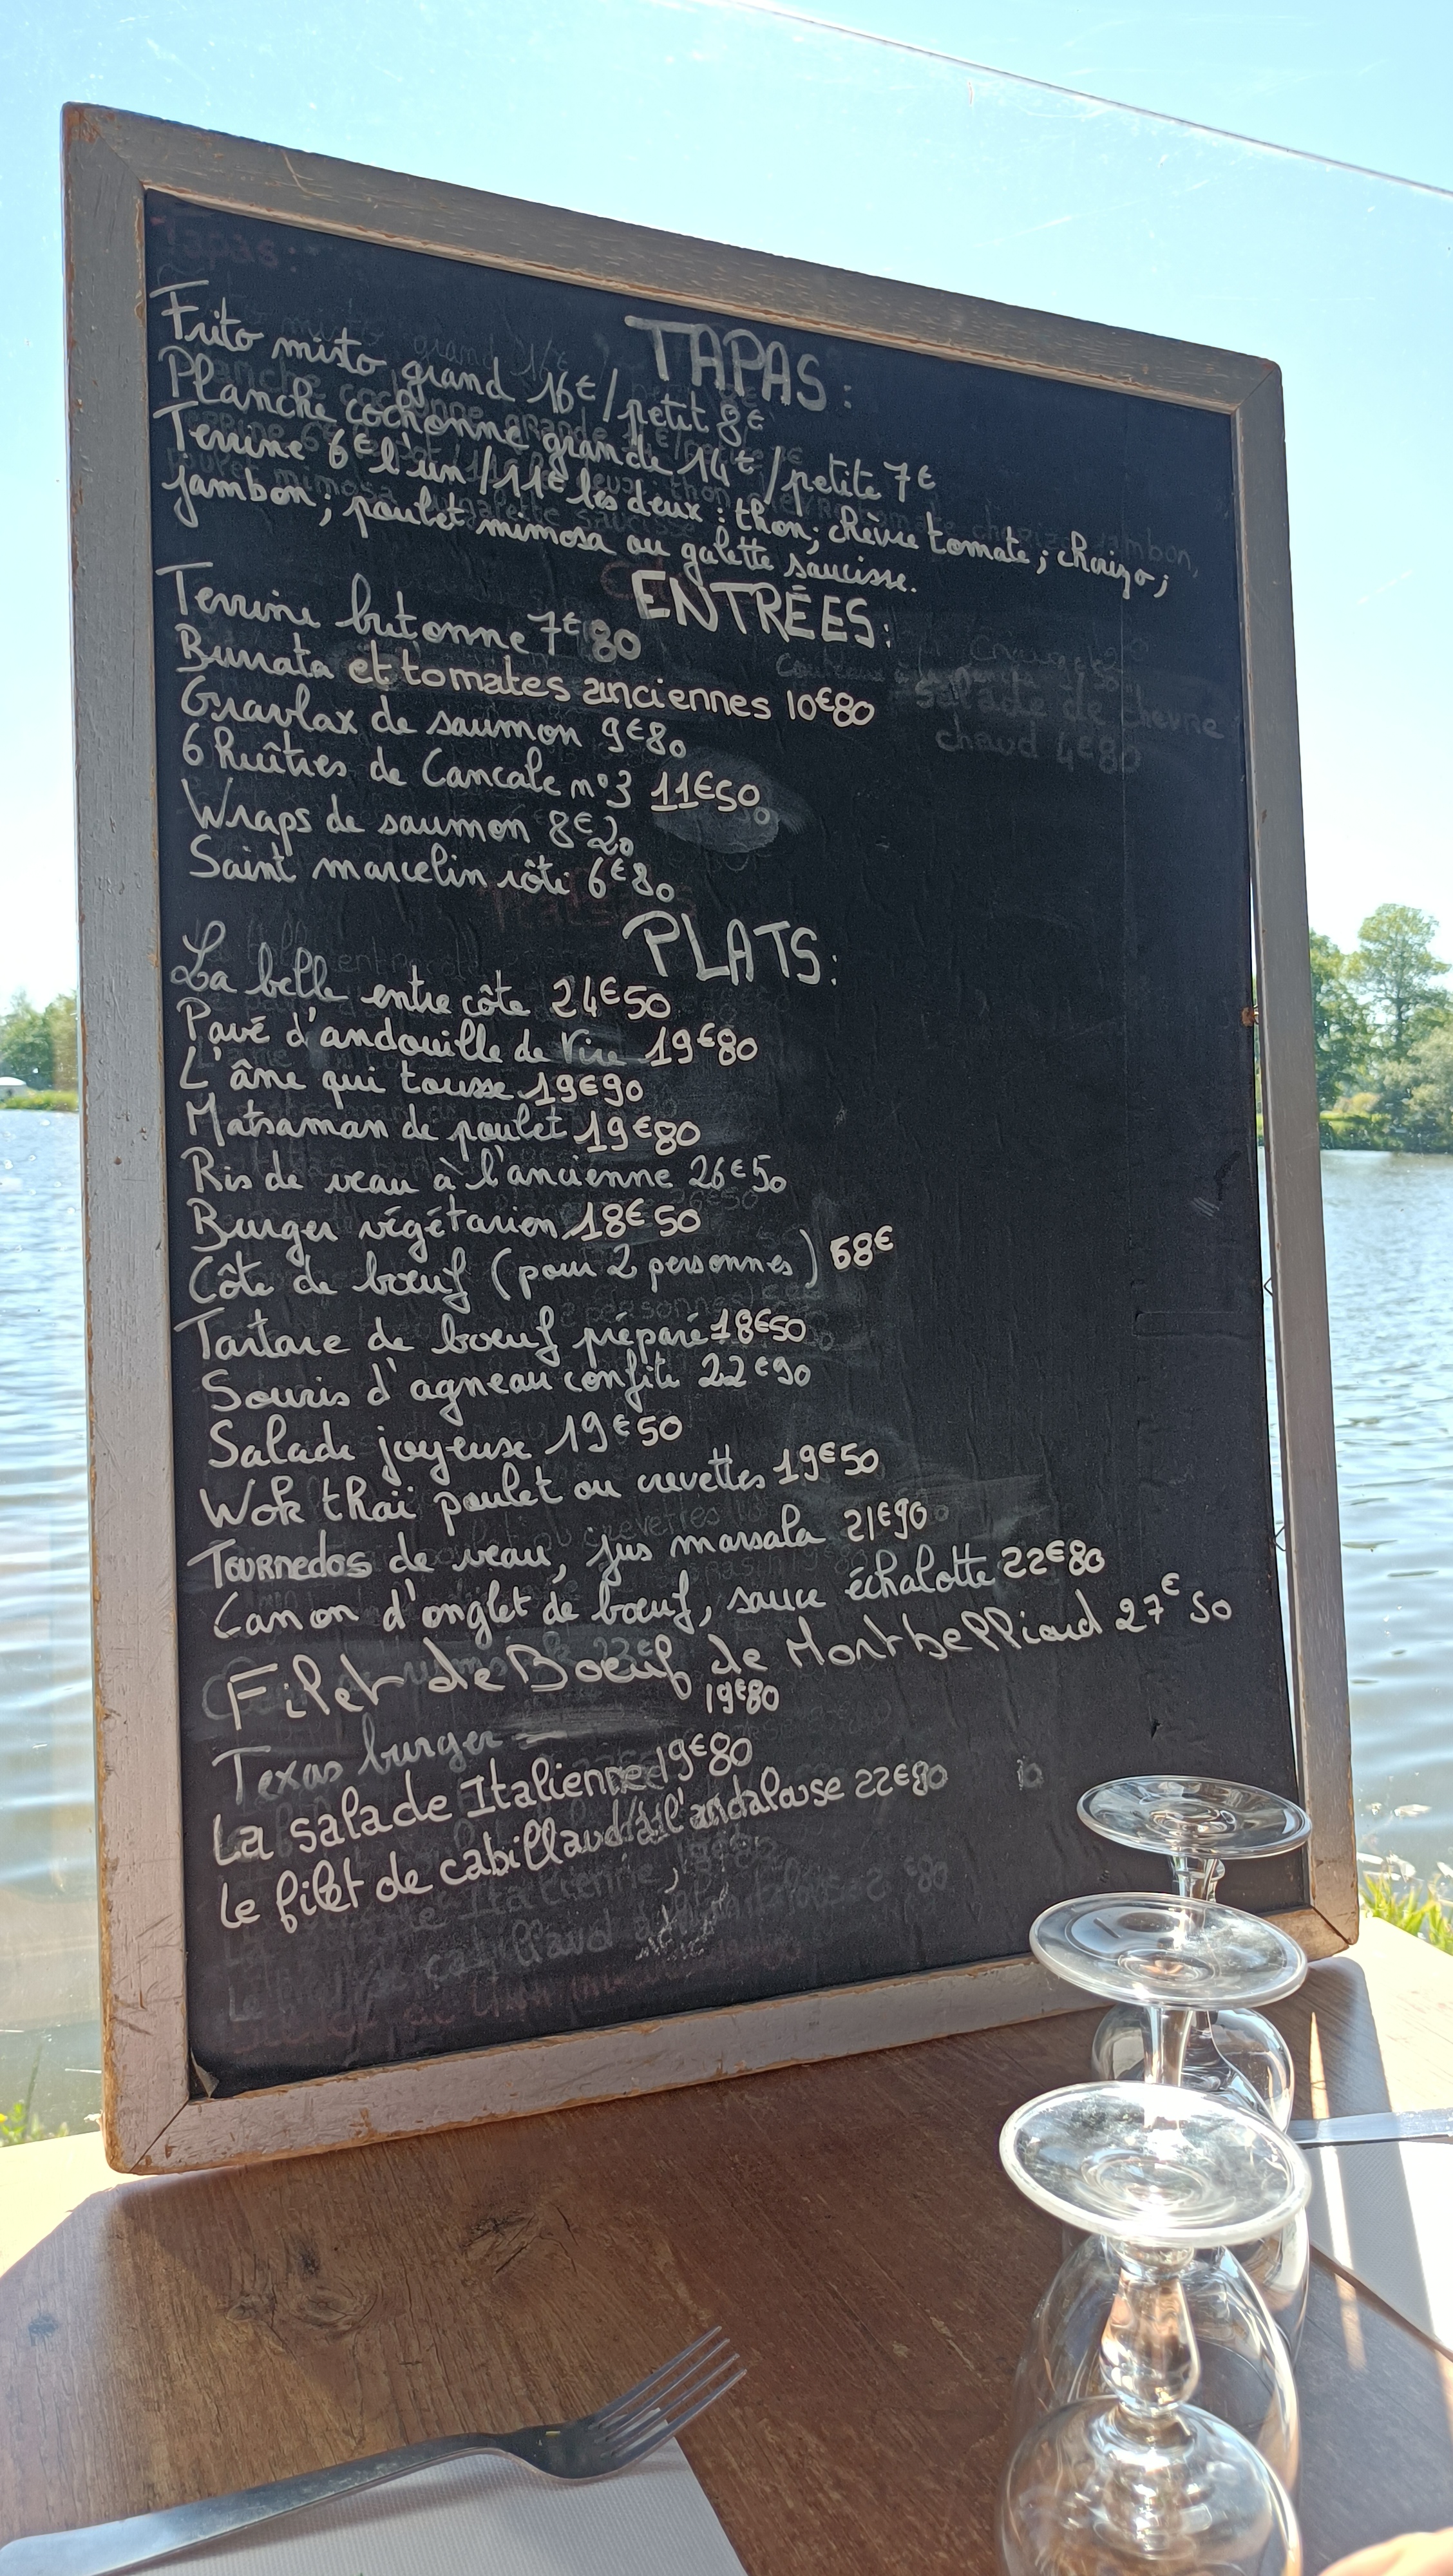 TAPAS:
Frito misto grand 16€ / petit 8€
Planche cochonne grande 14€ / petite 7€
Terrine 6€ l'un / 11€ les deux : thon; chèvre tomate; chorizo;
jambon; poulet mimosa ou galette saucisse.
ENTRÉES:
Terrine bretonne 7€80
Burrata et tomates anciennes 10€80
Gravlax de saumon 9€80
6 huîtres de Cancale n°3 11€50
Wraps de saumon 8€20
Saint marcelin rôti 6€80
salade de chevre
chaud 4€80
PLATS:
La belle entre côte 24€50
Pavé d'andouille de Vire 19€80
L'âme qui tousse 19€90
Matsaman de poulet 19€80
Ris de veau à l'ancienne 26€50
Burger végétarien 18€50
Côte de boeuf (pour 2 personnes) 58€
Tartare de boeuf préparé 18€50
Souris d'agneau confite 22€90
Salade joyeuse 19€50
Wok thaï poulet ou crevettes 19€50
Tournedos de veau, jus marsala 21€90
Canon d'onglet de boeuf, sauce échalotte 22€80
Filet de Boeuf de Montbelliard 27€50
Texas burger 19€80
La salade Italienne 19€80
Le filet de cabillaud à l'andalouse 22€80